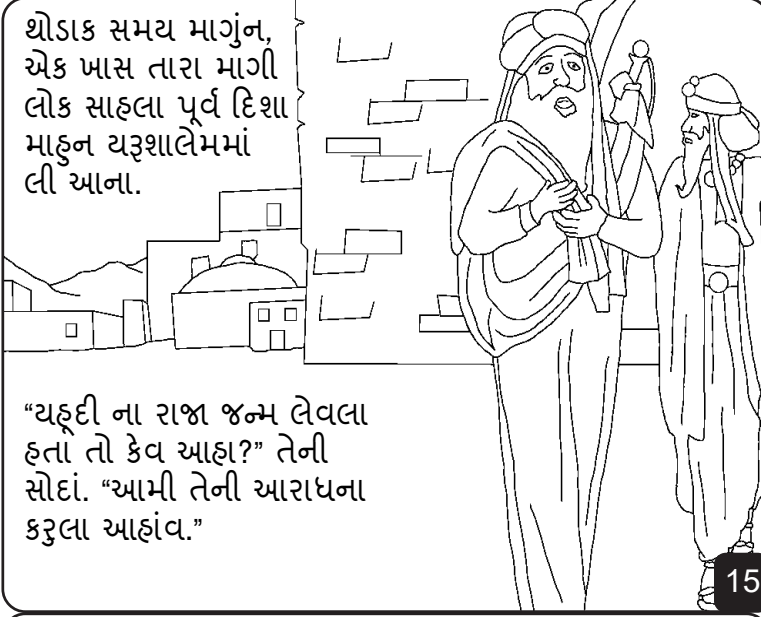 થોડાક સમય માગુંન,
એક ખાસ તારા માગી
લોક સાહલા પૂર્વ દિશા
માહુન યરૂશાલેમમાં
લી આના.
“યહૂદી ના રાજા જન્મ લેવલા
હતા તો કેવ આહા?” તેની
સોદાં. “આમી તેની આરાધના
કરુલા આહાંવ.”
15